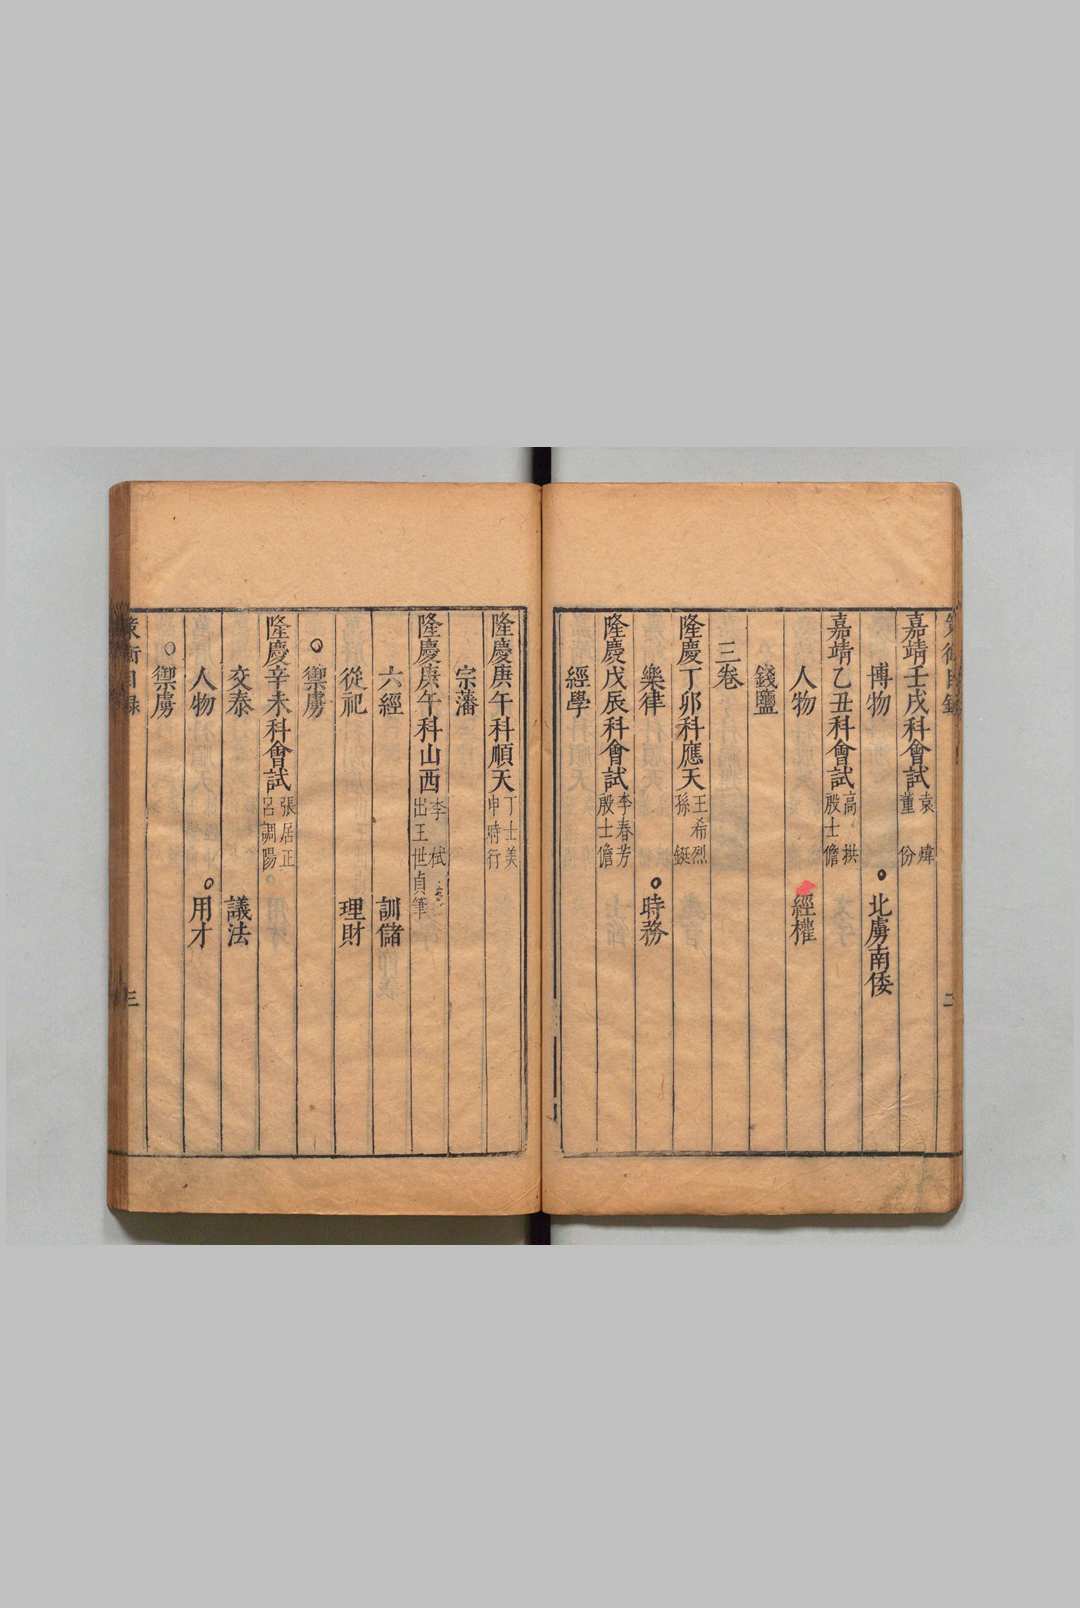 嘉靖壬戌科會試 袁煒 董份
博物 北虜南倭
嘉靖乙丑科會試 高拱 殷士儋
人物 經權
錢鹽
三卷
隆慶丁卯科應天 王希烈 孫鋌
樂律 時務
隆慶戊辰科會試 李春芳 殷士儋
經學
隆慶庚午科順天 丁士美 申時行
宗藩
隆慶庚午科山西 李栻 出王世貞筆
六經 訓儲
從祀 理財
禦虜
隆慶辛未科會試 張居正 呂調陽
交泰 議法
人物 用才
禦虜
策衡目錄 三